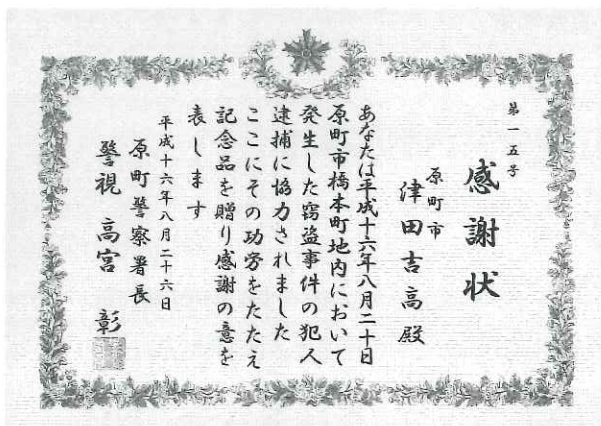 第一五号
感謝状
原町市
津田吉高殿
あなたは平成十六年八月二十日
原町市橋本町地内において
発生した窃盗事件の犯人
逮捕に協力されました
ここにその功労をたたえ
記念品を贈り感謝の意を
表します
平成十六年八月二十六日
原町警察署長
警視 高宮 彰